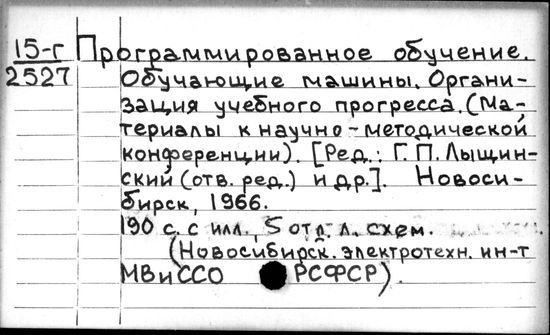 15-г Программированное обучение.
2527 Обучающие машины. Органи-
зация учебного прогресса. (Ма-
териалы к научно-методической
конференции). [Ред.: Г. П. Лыщин-
ский (отв. ред.) и др.]. Новоси-
бирск, 1966.
190 с. с илл., 5 отд. л. схем.
(Новосибирск. электротехн. ин-т
МВиССО РСФСР).